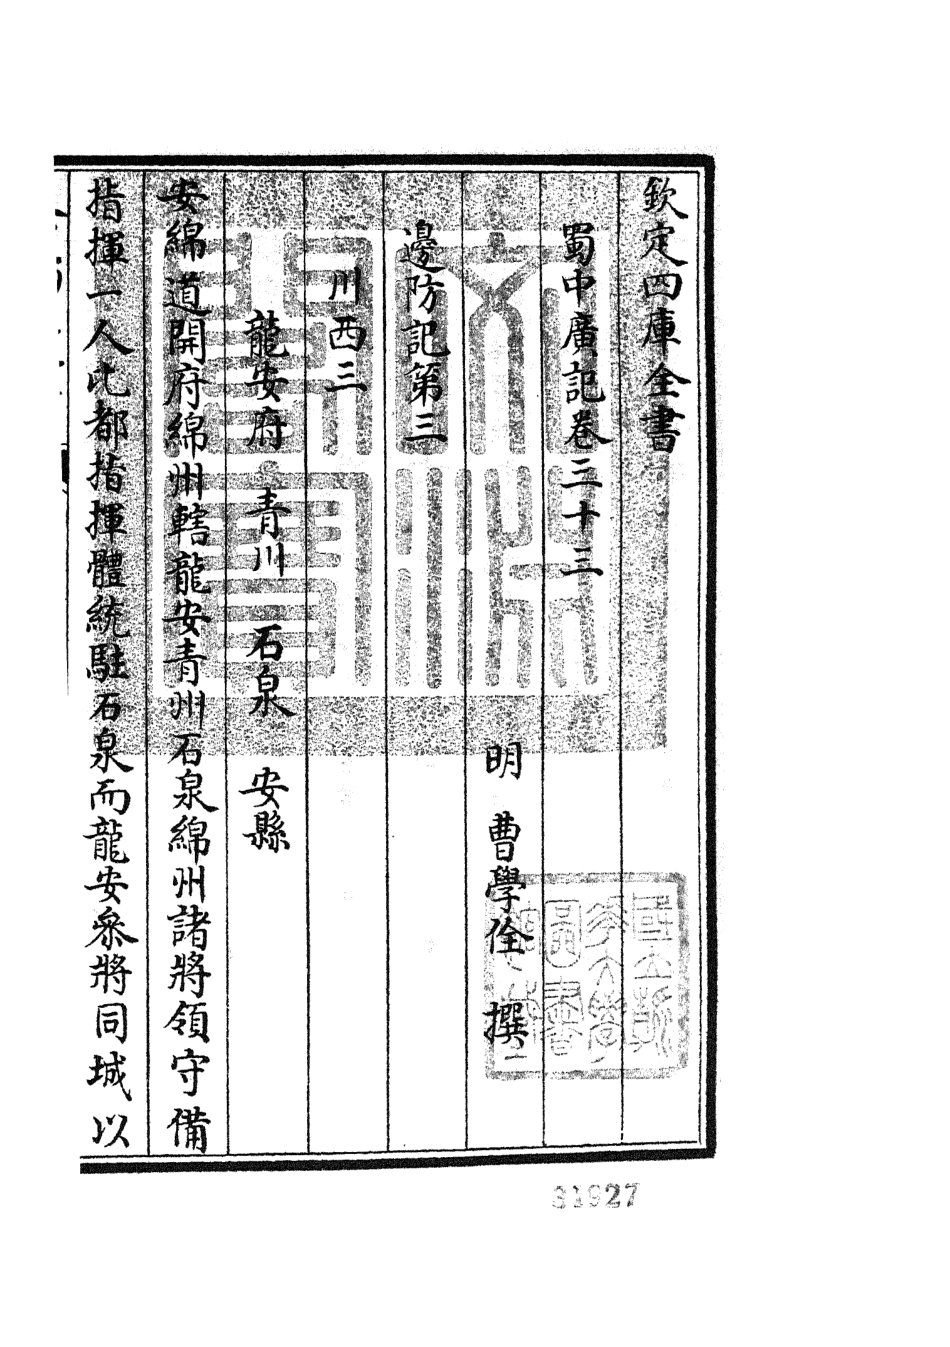 欽定四庫全書
蜀中廣記卷三十三
明 曹學佺 撰
邊防記第三
川西三
龍安府 青川 石泉 安縣
安綿道開府綿州轄龍安青州石泉綿州諸將領守備
指揮一人比都指揮體統駐石泉而龍安叅將同城以
文淵閣寶
31927